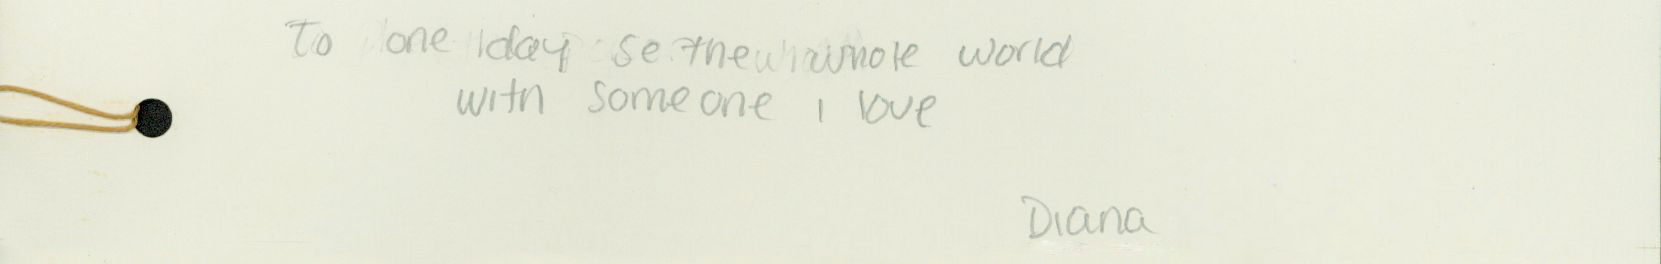 To one day se the whole world
with someone i love
Diana